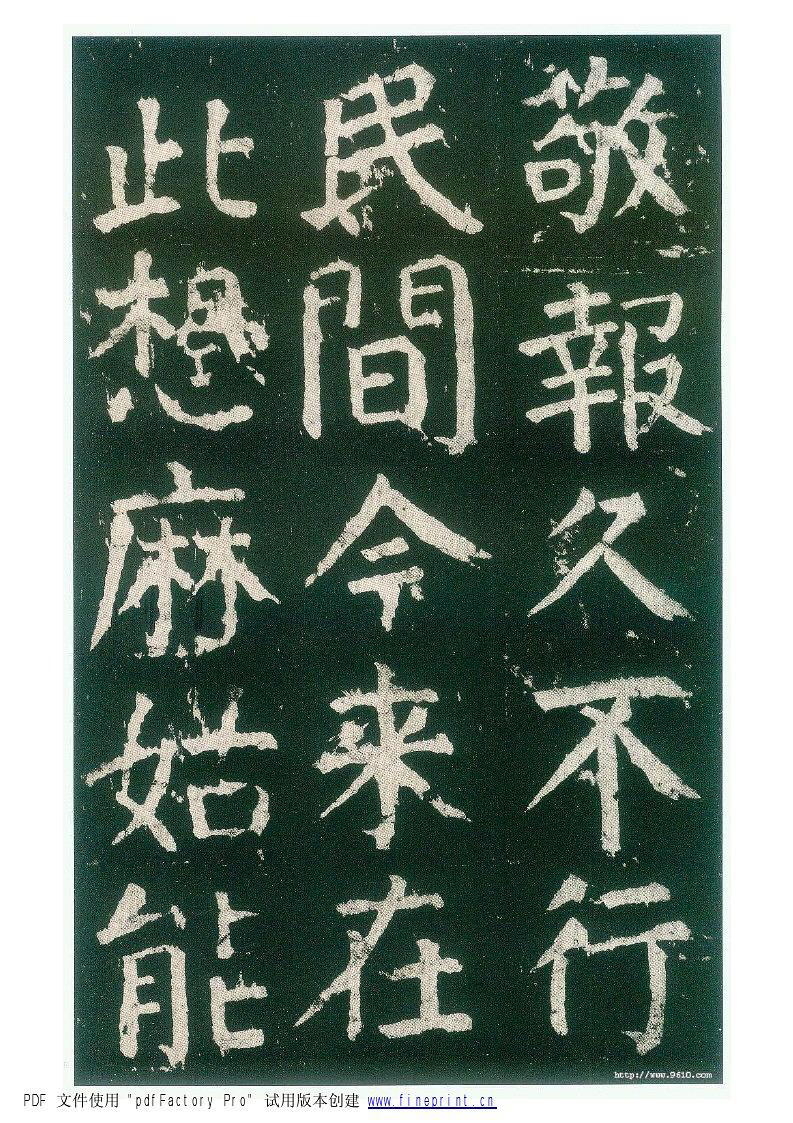 敬報久不行
民間今来在
此想麻姑能
http://www.9610.com
PDF 文件使用 "pdfFactory Pro" 试用版本创建 www.fineprint.cn